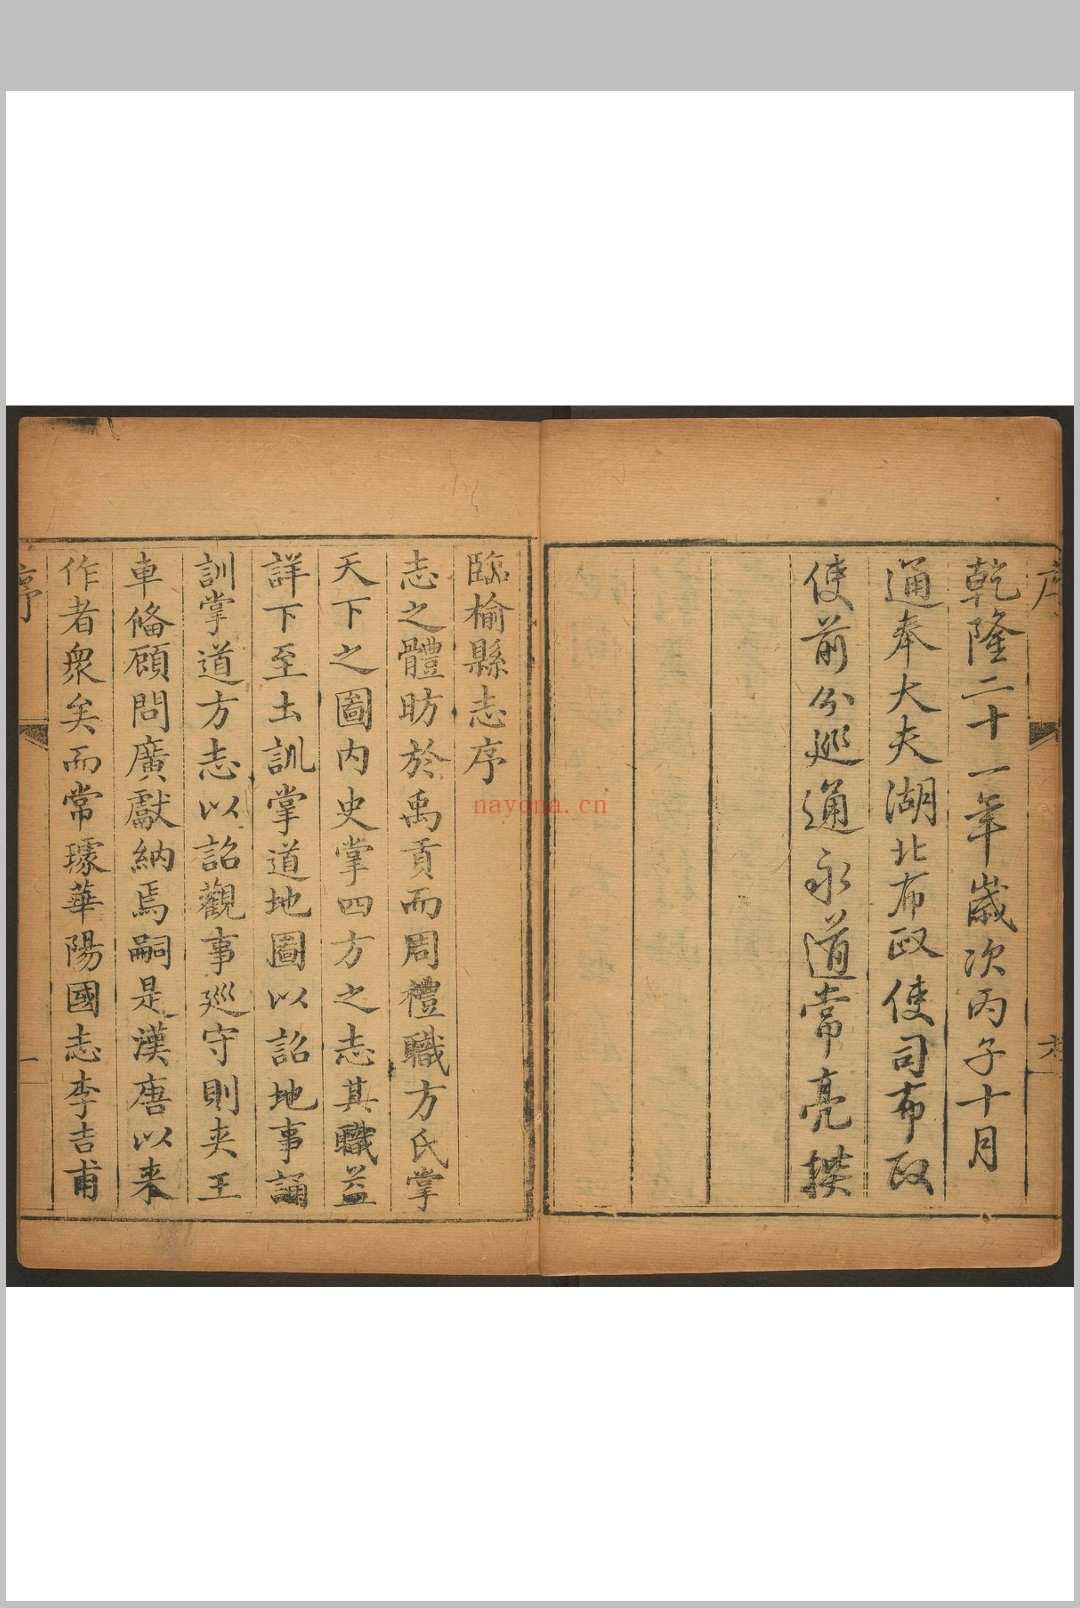 乾隆二十一年歲次丙子十月
通奉大夫湖北布政使司布政
使前分巡通永道常亮撰
臨榆縣志序
志之體昉於禹貢而周禮職方氏掌
天下之圖內史掌四方之志其職益
詳下至土訓掌道地圖以詔地事誦
訓掌道方志以詔觀事廵守則夾王
車備顧問廣獻納焉嗣是漢唐以来
作者衆矣而常璩華陽國志李吉甫
序
一
nayona.cn